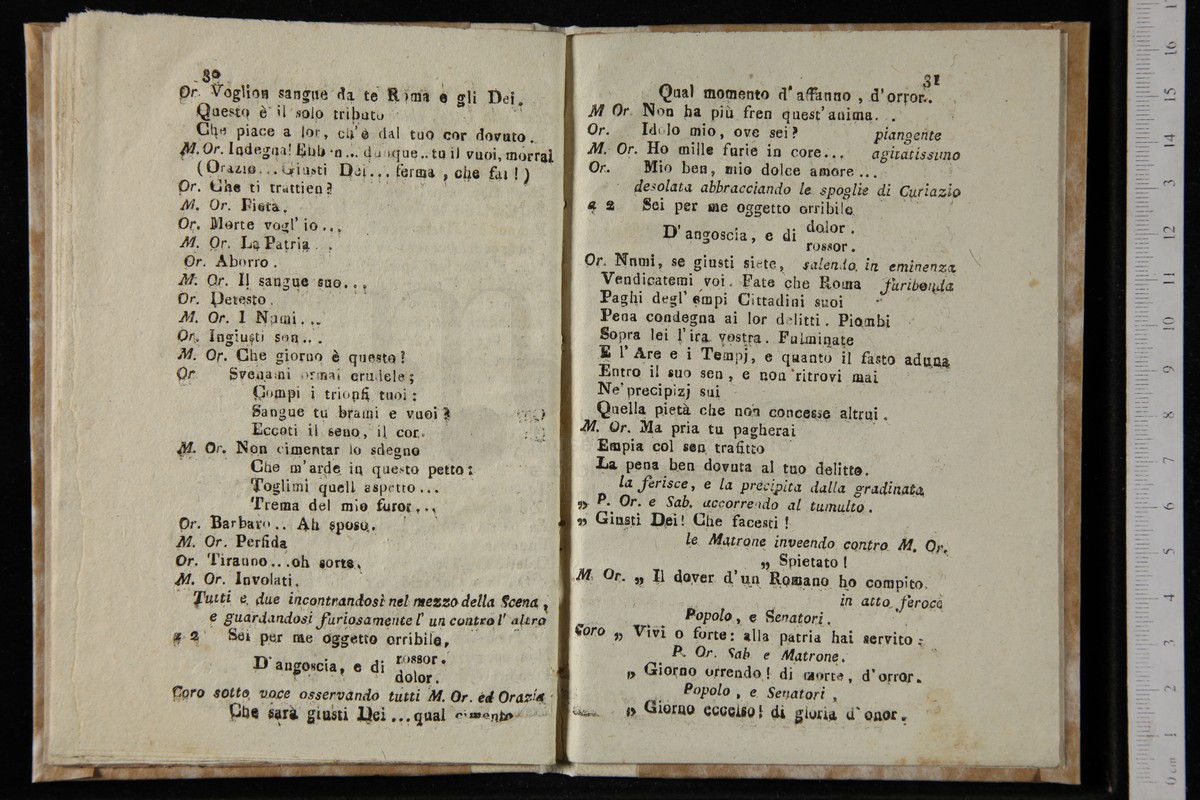 30
Or. Voglion sangue da te Roma e gli Dei.
Questo è il solo tributo
Che piace a lor, ch'è dal tuo cor dovuto.
M. Or. Indegna! Ebb n... dunque.. tu il vuoi, morrai
(Orazio... Giusti Dei... ferma, che fai!)
Or. Che ti trattien?
M. Or. Pietà.
Or. Morte vogl'io...
M. Or. La Patria..
Or. Aborro.
M. Or. Il sangue suo...
Or. Detesto.
M. Or. I Numi...
Or. Ingiusti son...
M. Or. Che giorno è questo?
Or Svenami ormai crudele;
Compi i trionfi tuoi:
Sangue tu brami e vuoi?
Eccoti il seno, il cor.
M. Or. Non cimentar lo sdegno
Che m'arde in questo petto:
Toglimi quell aspetto...
Trema del mio furor...
Or. Barbaro.. Ah sposo.
M. Or. Perfida
Or. Tiranno...oh sorte.
M. Or. Involati.
Tutti e due incontrandosi nel mezzo della Scena,
e guardandosi furiosamente l'un contro l'altro
a 2 Sei per me oggetto orribile,
D'angoscia, e di rossor.
dolor.
Coro sotto voce osservando tutti M. Or. ed Orazia
Che sarà giusti Dei...qual cimento
31
Qual momento d'affanno, d'orror..
M Or. Non ha più fren quest'anima..
Or. Idolo mio, ove sei? piangente
M. Or. Ho mille furie in core... agitatissimo
Or. Mio ben, mio dolce amore...
desolata abbracciando le spoglie di Curiazio
a 2 Sei per me oggetto orribile
D'angoscia, e di dolor.
rossor.
Or. Nnmi, se giusti siete, salendo in eminenza
Vendicatemi voi. Fate che Roma furibonda
Paghi degl'empi Cittadini suoi
Pena condegna ai lor delitti. Piombi
Sopra lei l'ira vostra. Fulminate
E l'Are e i Tempj, e quanto il fasto aduna
Entro il suo sen, e non ritrovi mai
Ne'precipizj sui
Quella pietà che non concesse altrui.
M. Or. Ma pria tu pagherai
Empia col sen trafitto
La pena ben dovuta al tuo delitto.
la ferisce, e la precipita dalla gradinata
„ P. Or. e Sab. accorrendo al tumulto.
„ Giusti Dei! Che facesti!
le Matrone inveendo contro M. Or.
„ Spietato!
M. Or. „ Il dover d'un Romano ho compito.
in atto feroce
Popolo, e Senatori.
Coro „ Vivi o forte: alla patria hai servito:
P. Or. Sab e Matrone.
„ Giorno orrendo! di morte, d'orror.
Popolo, e Senatori,
„ Giorno eccelso! di gloria d'onor.
0 cm 1 2 3 4 5 6 7 8 9 10 11 12 13 14 15 16 17